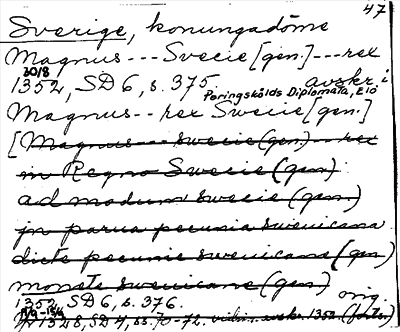 47
Sverige, konungadöme
Magnus --- Svecie [gen.] --- rex
30/8
1352, SD 6, s. 375. avskr. i
Peringskölds Diplomata, E10
Magnus -- rex Swecie [gen.]
[Magnus --- Swecie (gen.) --- rex
in Regno Swecie (gen)
ad modum swecie (gen.)
in parua pecunia swenicana
dicte pecunie swenicane (gen)
monete swenicane (gen)
1352 SD 6, s. 376. orig.
1328, SD 4, ss. 70-72. avskr. 1352 (forts.)